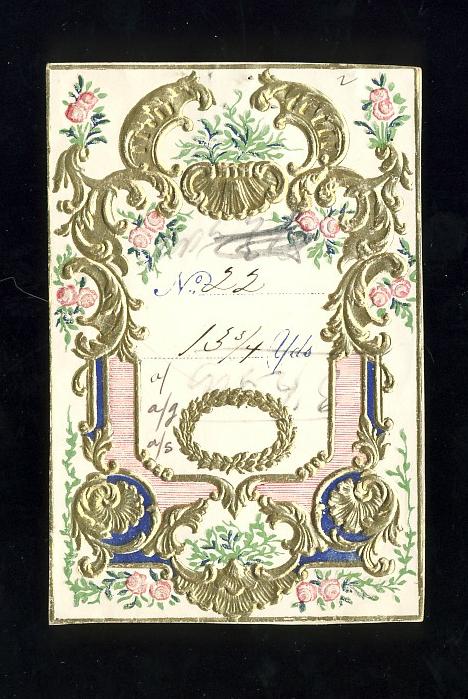 2
No. 22
13 3/4 Yds
a/
a/9
a/s